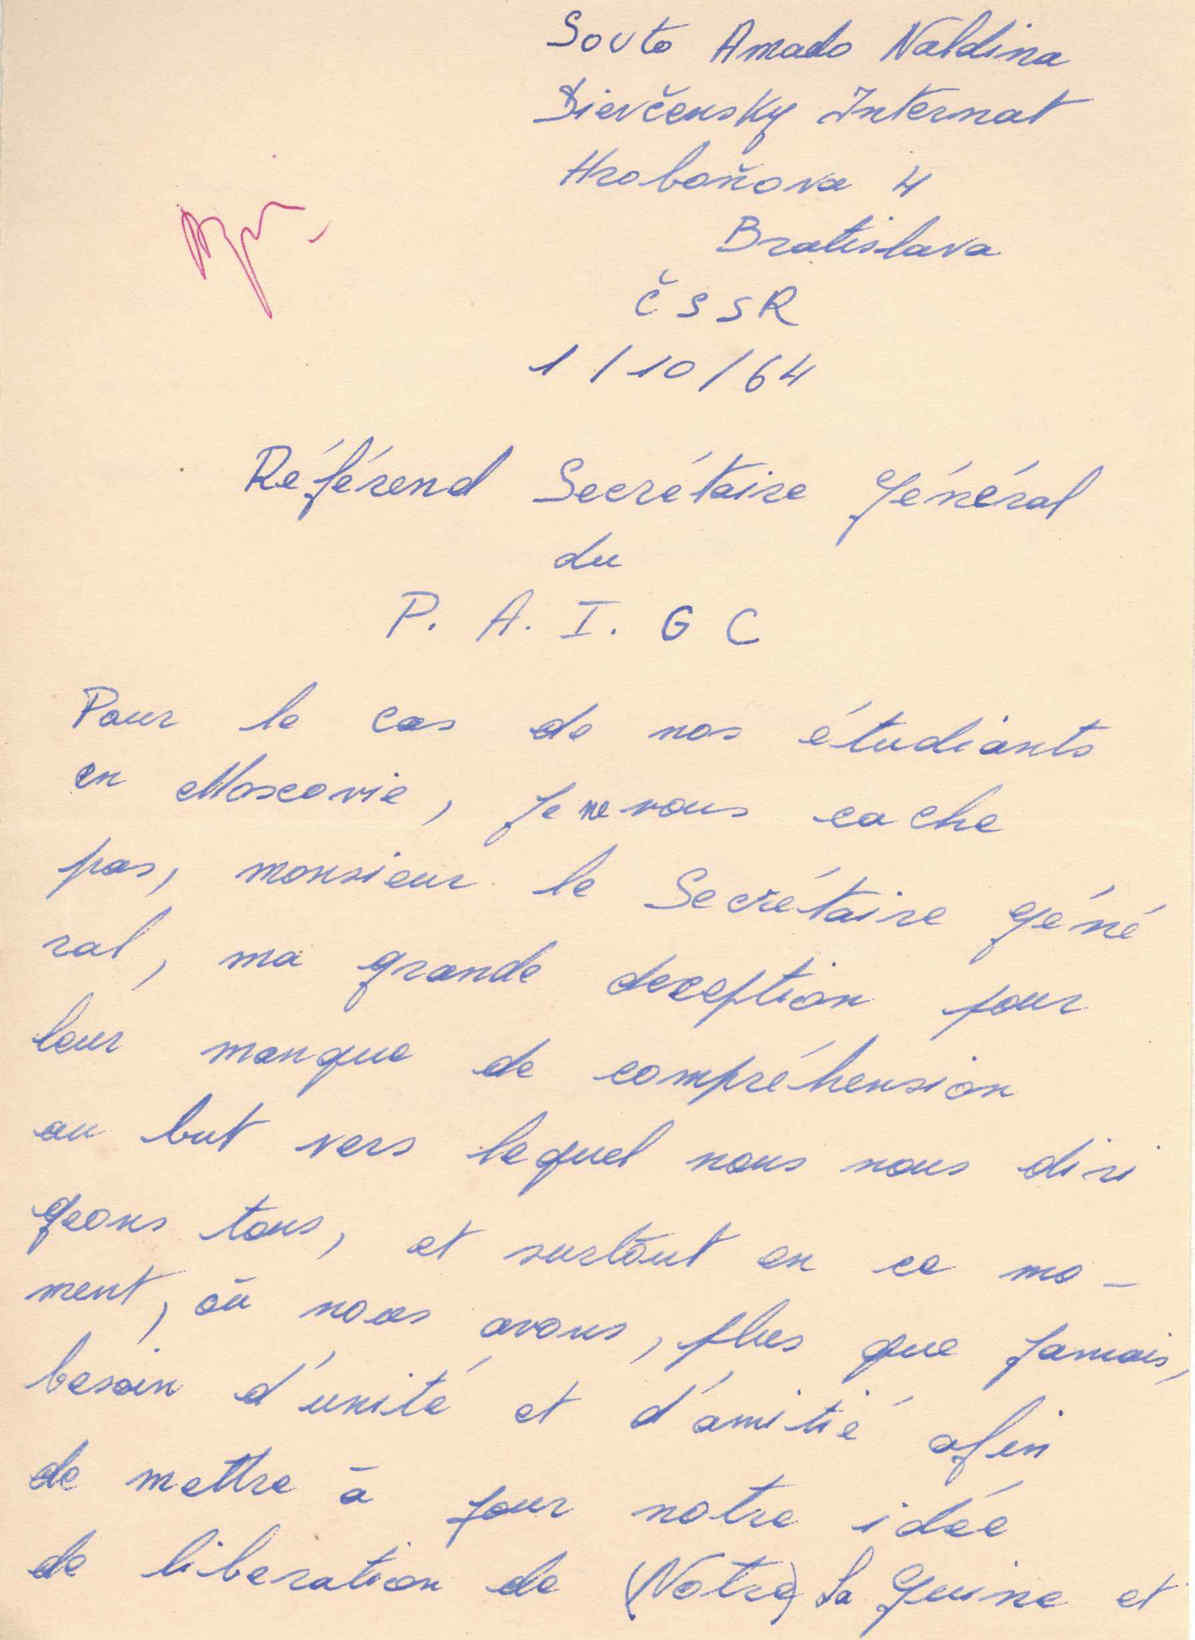 Souto Amado Naldina
Dievčensky Internat
Hroboňova 4
Bratislava
ČSSR
1/10/64
Référend Secrétaire Général
du
P. A. I. G C
Pour le cas de nos étudiants
en Moscovie, je ne vous cache
pas, monsieur le Secrétaire géné
ral, ma grande deception pour
leur manque de compréhension
au but vers lequel nous nous diri
geons tous, et surtout en ce mo-
ment, où nous avons, plus que jamais,
besoin d'unité et d'amitié afin
de mettre à jour notre idée
de liberation de (Notre) la Guine et